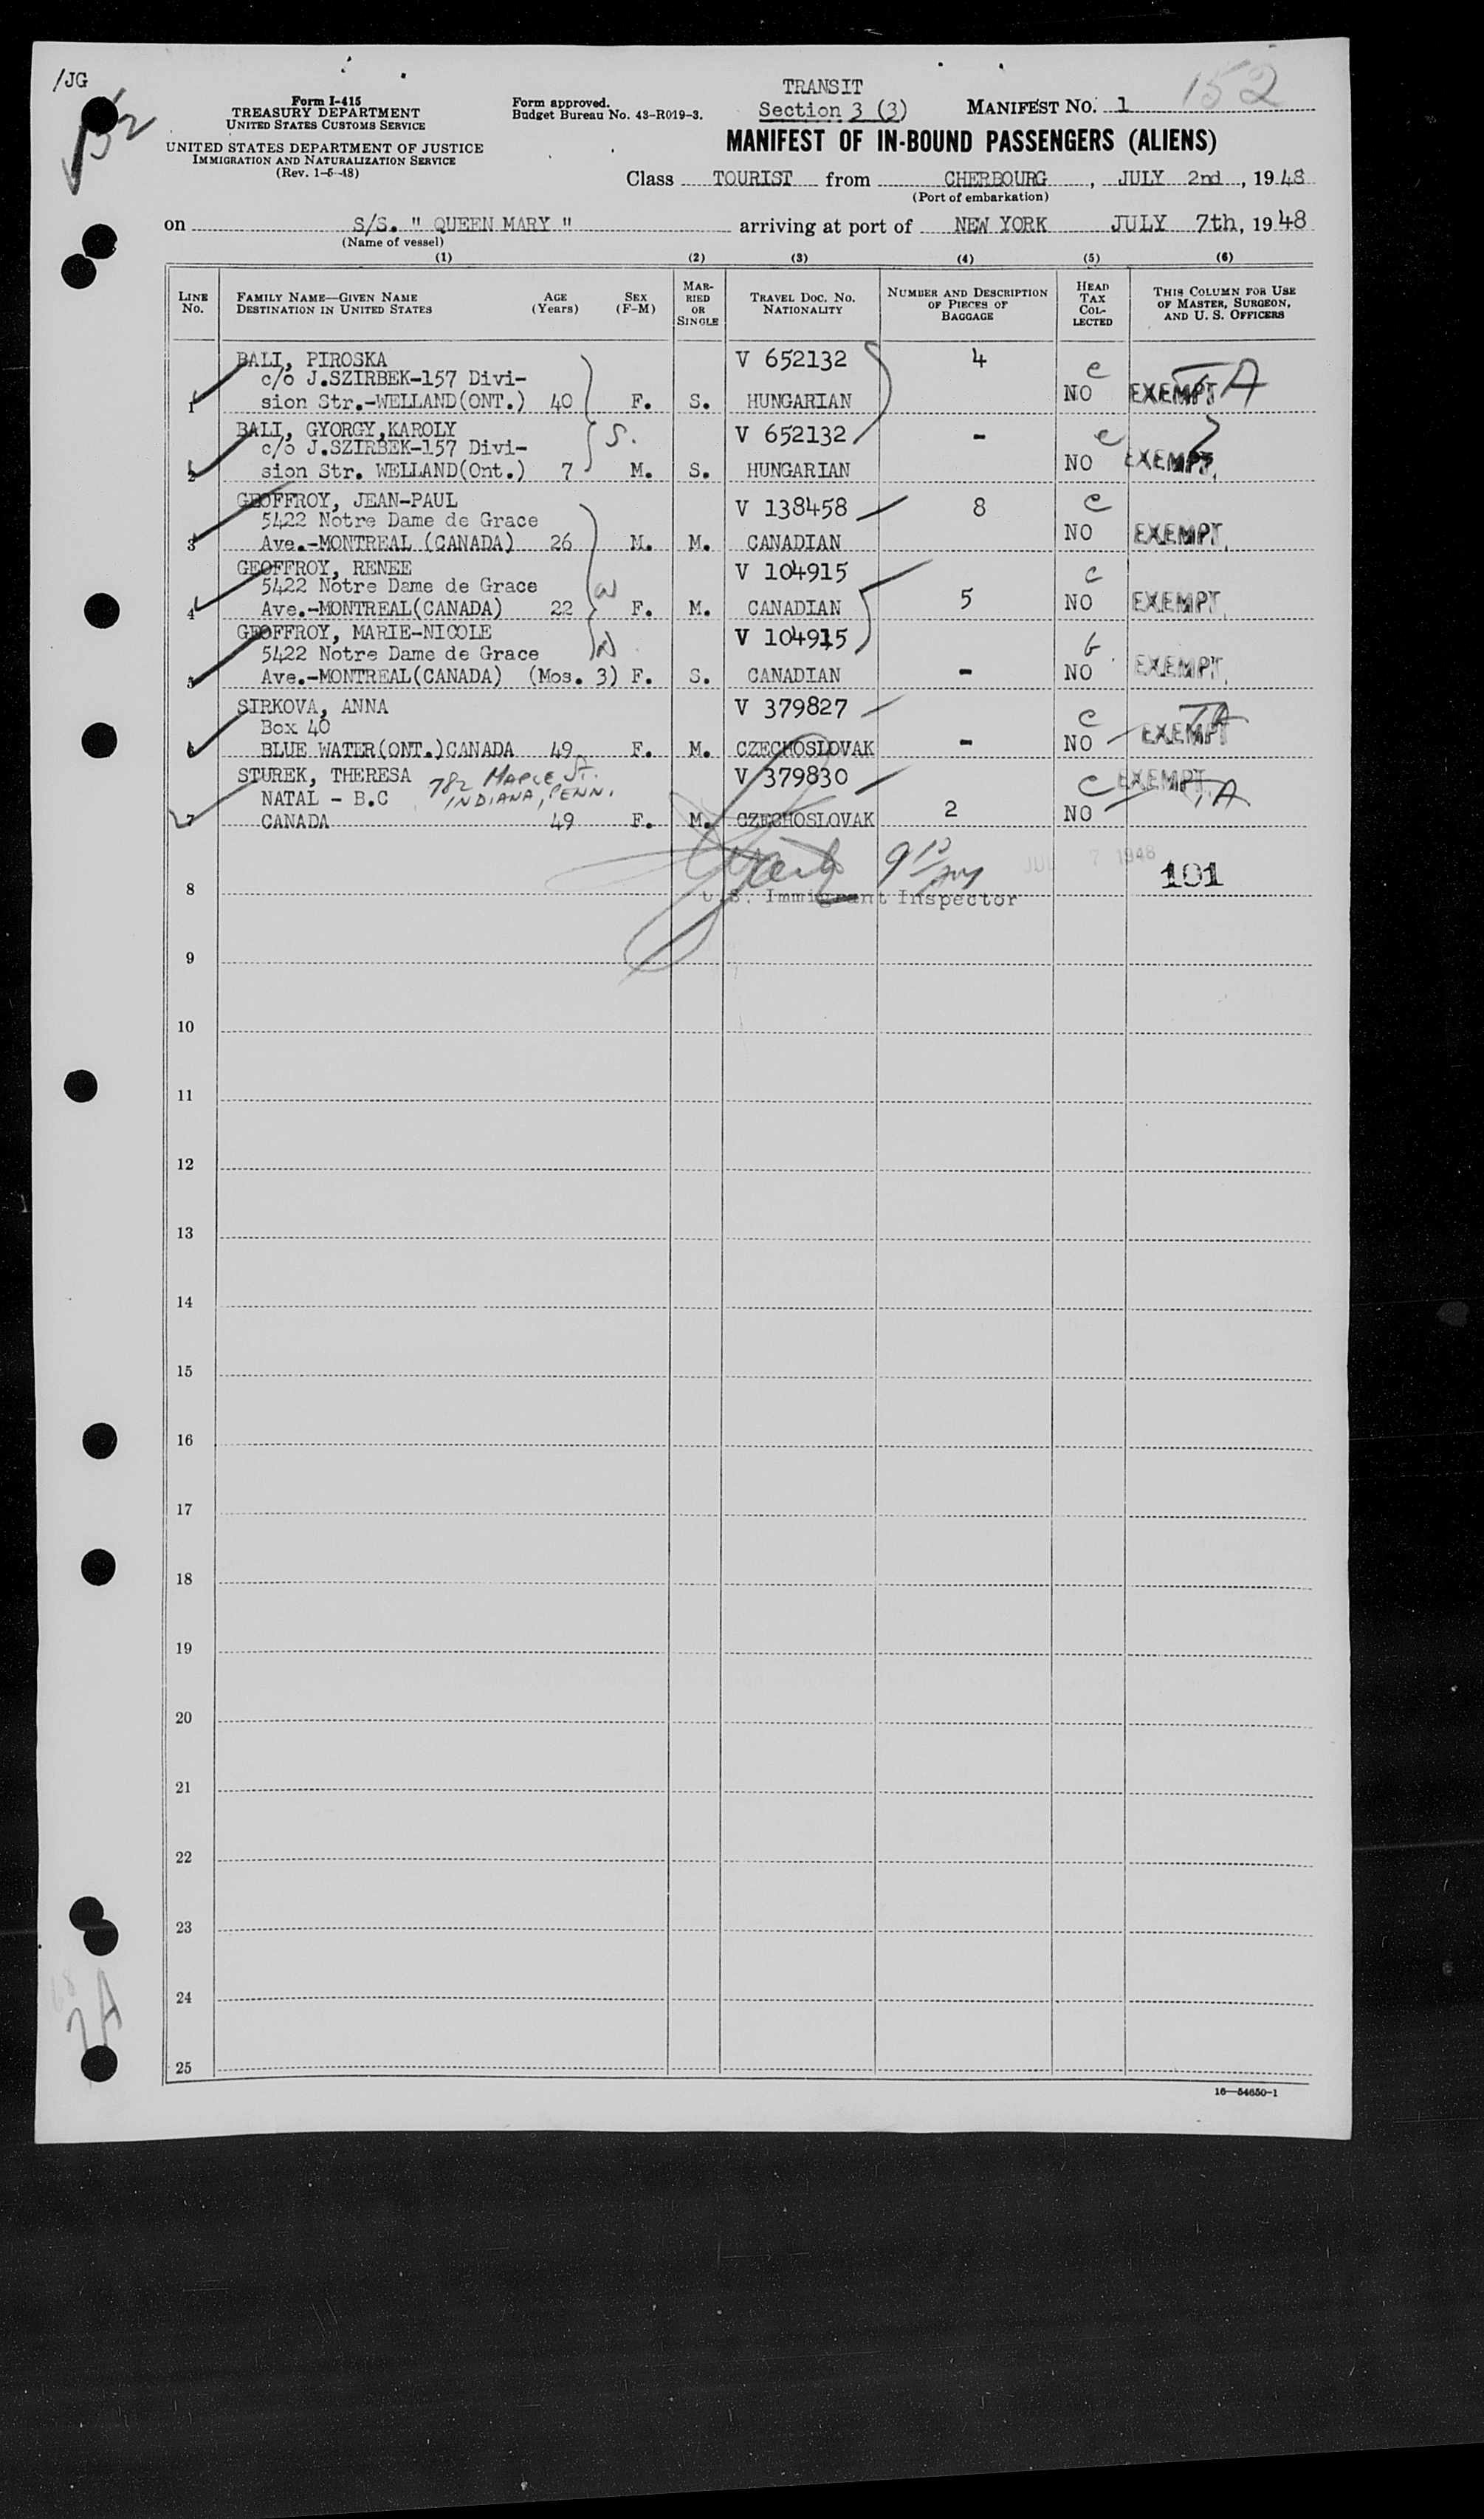 /JG
152
Form I-415
TREASURY DEPARTMENT
UNITED STATES CUSTOMS SERVICE
UNITED STATES DEPARTMENT OF JUSTICE
IMMIGRATION AND NATURALIZATION SERVICE
(Rev. 1-5-48)
Form approved.
Budget Bureau No. 43-R019-3.
TRANSIT
Section 3 (3)
MANIFEST NO. 1
152
MANIFEST OF IN-BOUND PASSENGERS (ALIENS)
Class TOURIST from CHERBOURG, JULY 2nd, 1948
(Port of embarkation)
on S/S. " QUEEN MARY " arriving at port of NEW YORK JULY 7th, 1948
(Name of vessel)
(1) (2) (3) (4) (5) (6)
LINE No.
FAMILY NAME—GIVEN NAME
DESTINATION IN UNITED STATES
AGE (Years)
SEX (F-M)
MARRIED OR SINGLE
TRAVEL DOC. NO. NATIONALITY
NUMBER AND DESCRIPTION OF PIECES OF BAGGAGE
HEAD TAX COLLECTED
THIS COLUMN FOR USE OF MASTER, SURGEON, AND U. S. OFFICERS
BALI, PIROSKA V 652132 4 e
c/o J.SZIRBEK-157 Divi-
1 sion Str.-WELLAND(ONT.) 40 F. S. HUNGARIAN NO EXEMPT TA
BALI, GYORGY,KAROLY S. V 652132 - e
c/o J.SZIRBEK-157 Divi-
2 sion Str. WELLAND(Ont.) 7 M. S. HUNGARIAN NO EXEMPT
GEOFFROY, JEAN-PAUL V 138458 8 e
5422 Notre Dame de Grace
3 Ave.-MONTREAL (CANADA) 26 M. M. CANADIAN NO EXEMPT
GEOFFROY, RENEE V 104915 c
5422 Notre Dame de Grace W
4 Ave.-MONTREAL(CANADA) 22 F. M. CANADIAN 5 NO EXEMPT
GEOFFROY, MARIE-NICOLE V 104915
5422 Notre Dame de Grace D
5 Ave.-MONTREAL(CANADA) (Mos. 3) F. S. CANADIAN - NO EXEMPT
SIRKOVA, ANNA V 379827
Box 40 c TA
6 BLUE WATER(ONT.)CANADA 49 F. M. CZECHOSLOVAK - NO EXEMPT
STUREK, THERESA 782 MAPLE St. V 379830 C EXEMPT
NATAL - B.C INDIANA, PENN. TA
7 CANADA 49 F. M. CZECHOSLOVAK 2 NO
JUL 7 1948
101
8
U.S. Immigrant Inspector
9
10
11
12
13
14
15
16
17
18
19
20
21
22
23
24
2A
25
16—54650-1